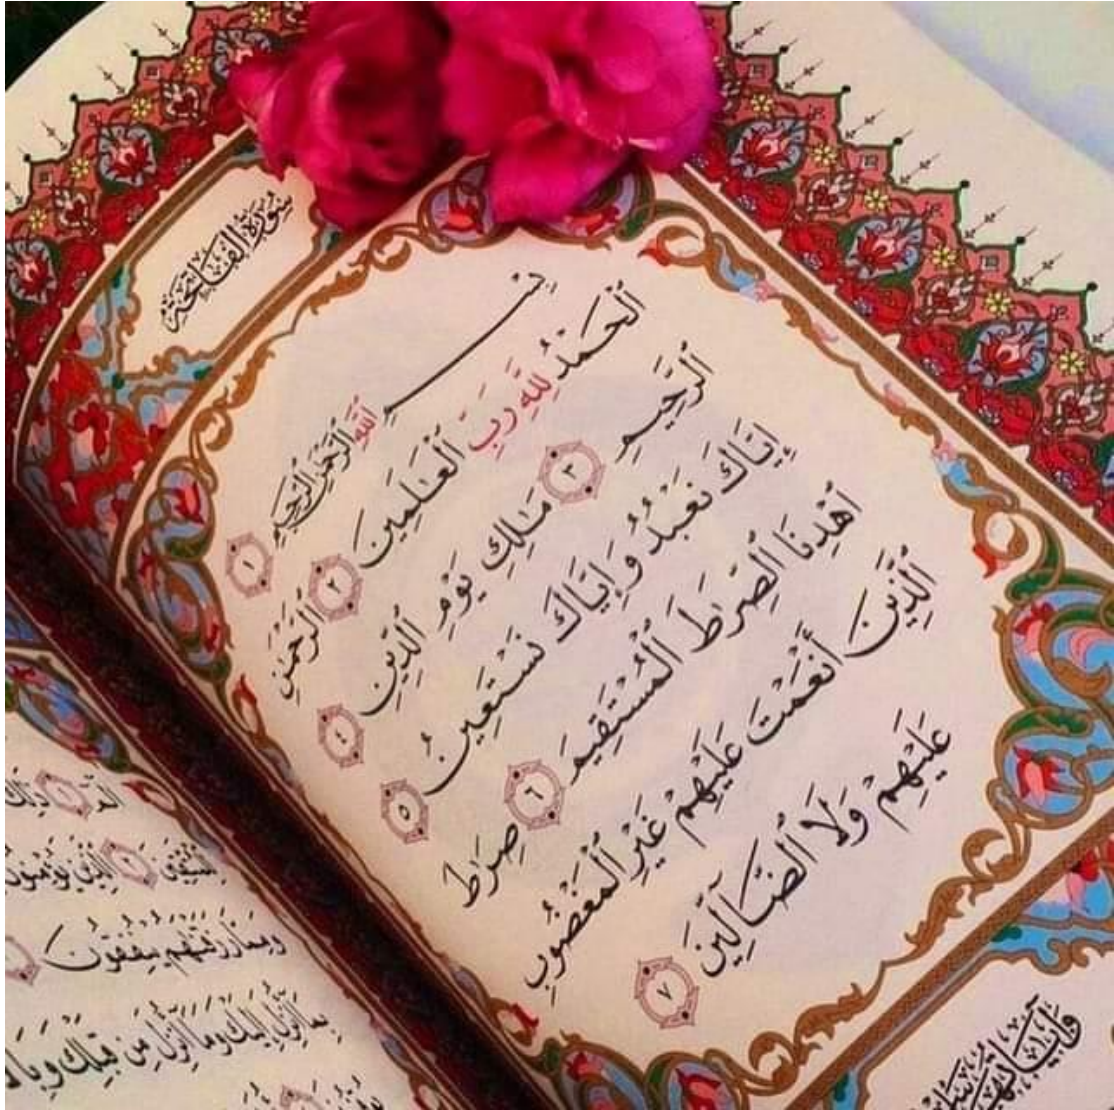 سُورَةُ الْفَاتِحَةِ
بِسْمِ ٱللَّهِ ٱلرَّحْمَٰنِ ٱلرَّحِيمِ ١
ٱلْحَمْدُ لِلَّهِ رَبِّ ٱلْعَٰلَمِينَ ٢ ٱلرَّحْمَٰنِ
ٱلرَّحِيمِ ٣ مَٰلِكِ يَوْمِ ٱلدِّينِ ٤
إِيَّاكَ نَعْبُدُ وَإِيَّاكَ نَسْتَعِينُ ٥
ٱهْدِنَا ٱلصِّرَٰطَ ٱلْمُسْتَقِيمَ ٦ صِرَٰطَ
ٱلَّذِينَ أَنْعَمْتَ عَلَيْهِمْ غَيْرِ ٱلْمَغْضُوبِ
عَلَيْهِمْ وَلَا ٱلضَّآلِّينَ ٧
الٓمٓ ١ ذَٰلِكَ
لِّلْمُتَّقِينَ ٢ ٱلَّذِينَ يُؤْمِنُونَ
وَمِمَّا رَزَقْنَٰهُمْ يُنفِقُونَ
بِمَآ أُنزِلَ إِلَيْكَ وَمَآ أُنزِلَ مِن قَبْلِكَ